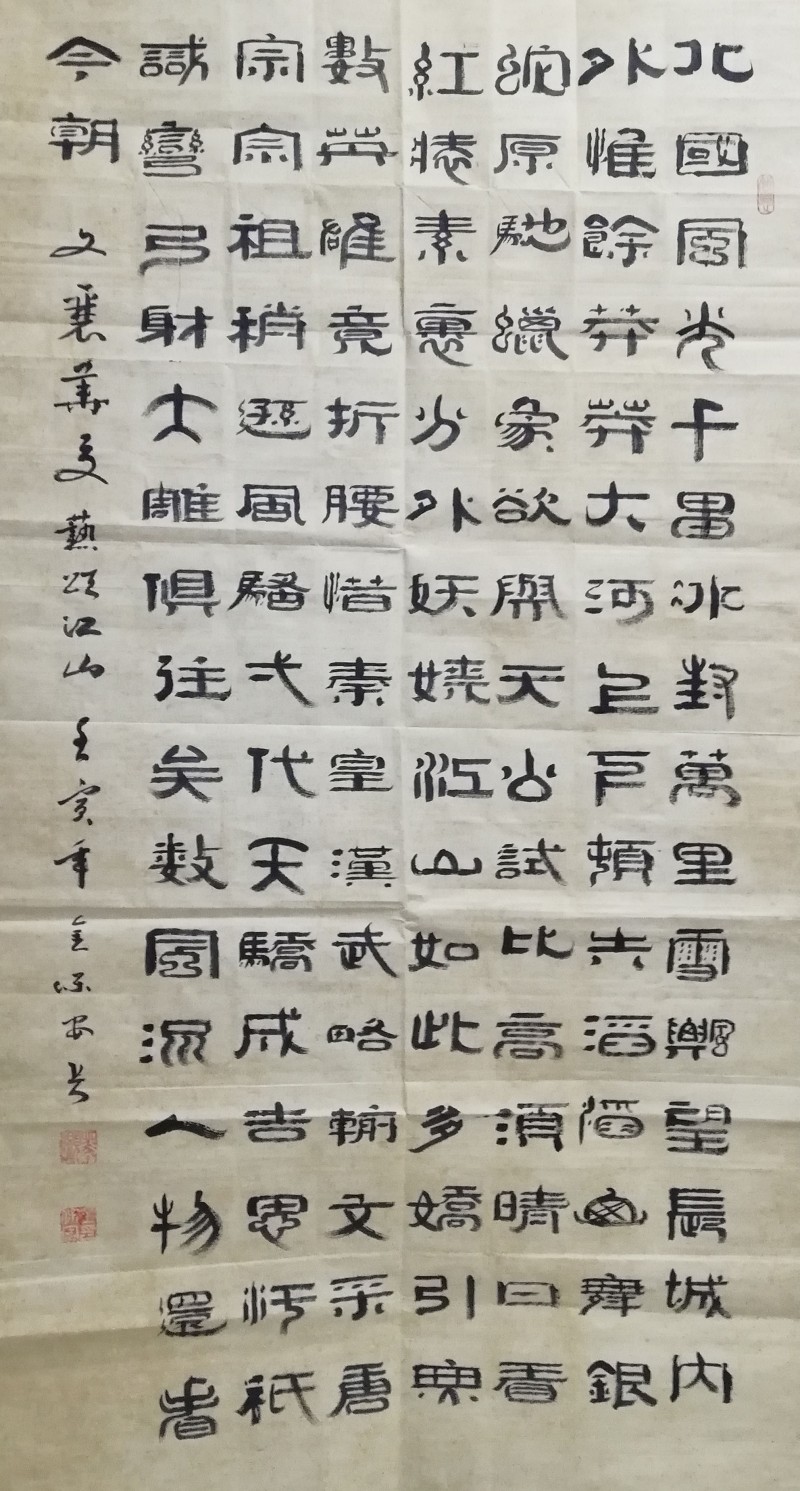 北國風光千里冰封萬里雪飄望長城內
外惟餘莽莽大河上下頓失滔滔山舞銀
蛇原馳蠟象欲與天公試比高須晴日看
紅裝素裹分外妖嬈江山如此多嬌引無
數英雄竟折腰惜秦皇漢武略輸文采唐
宗宗祖稍遜風騷弌代天驕成吉思汗祇
識彎弓射大雕俱往矣數風流人物還看
今朝 文襄華夏藝頌江山 壬寅年 金源安书